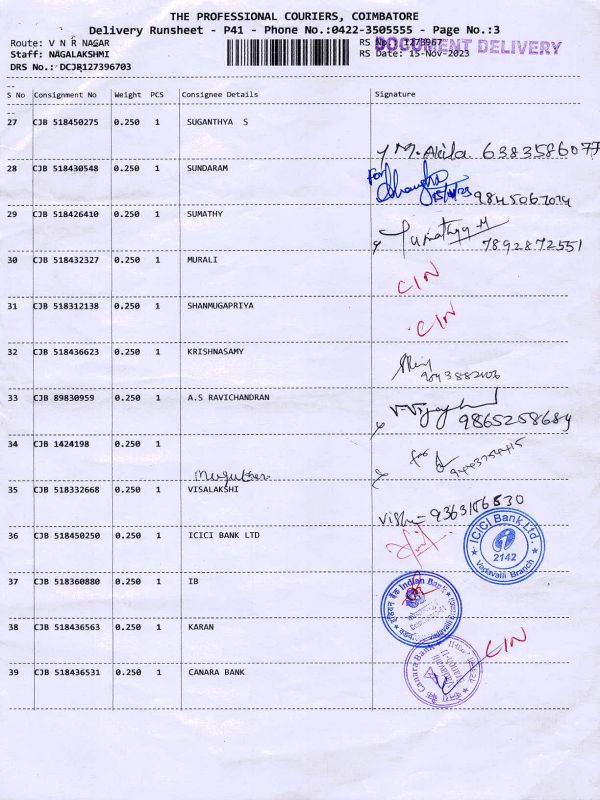 THE PROFESSIONAL COURIERS, COIMBATORE
Delivery Runsheet - P41 - Phone No.:0422-3505555 - Page No.:3
Route: V N R NAGAR RS No.: 1273967
DOCUMENT DELIVERY
Staff: NAGALAKSHMI RS Date: 15-Nov-2023
DRS No.: DCJB127396703
S No Consignment No Weight PCS Consignee Details Signature
27 CJB 518450275 0.250 1 SUGANTHYA S
M. Akila 6383586077
28 CJB 518430548 0.250 1 SUNDARAM
For
15/11/23 9845067074
29 CJB 518426410 0.250 1 SUMATHY
Sumathyy M 7892872551
30 CJB 518432327 0.250 1 MURALI
CIN
31 CJB 518312138 0.250 1 SHANMUGAPRIYA
CIN
32 CJB 518436623 0.250 1 KRISHNASAMY
33 CJB 89830959 0.250 1 A.S RAVICHANDRAN
9865258684
34 CJB 1424198 0.250 1
for
35 CJB 518332668 0.250 1 VISALAKSHI
36 CJB 518450250 0.250 1 ICICI BANK LTD
ICICI Bank Ltd.
2142
Vadavalli Branch
37 CJB 518360880 0.250 1 IB
Indian Bank
38 CJB 518436563 0.250 1 KARAN
CIN
39 CJB 518436531 0.250 1 CANARA BANK
Canara Bank